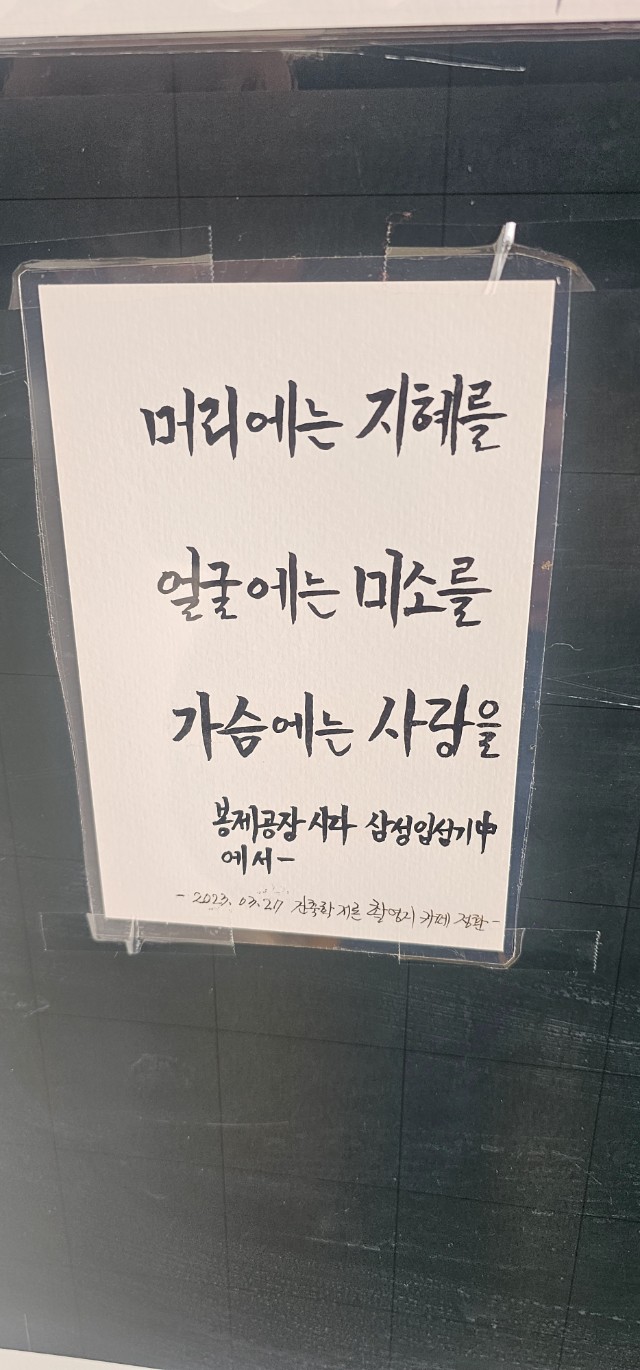 머리에는 지혜를
얼굴에는 미소를
가슴에는 사랑을
봉제공장 시다 삼성입성기中
에서-
- 2023. 03. 27 건축학개론 촬영지 카페 전환 -